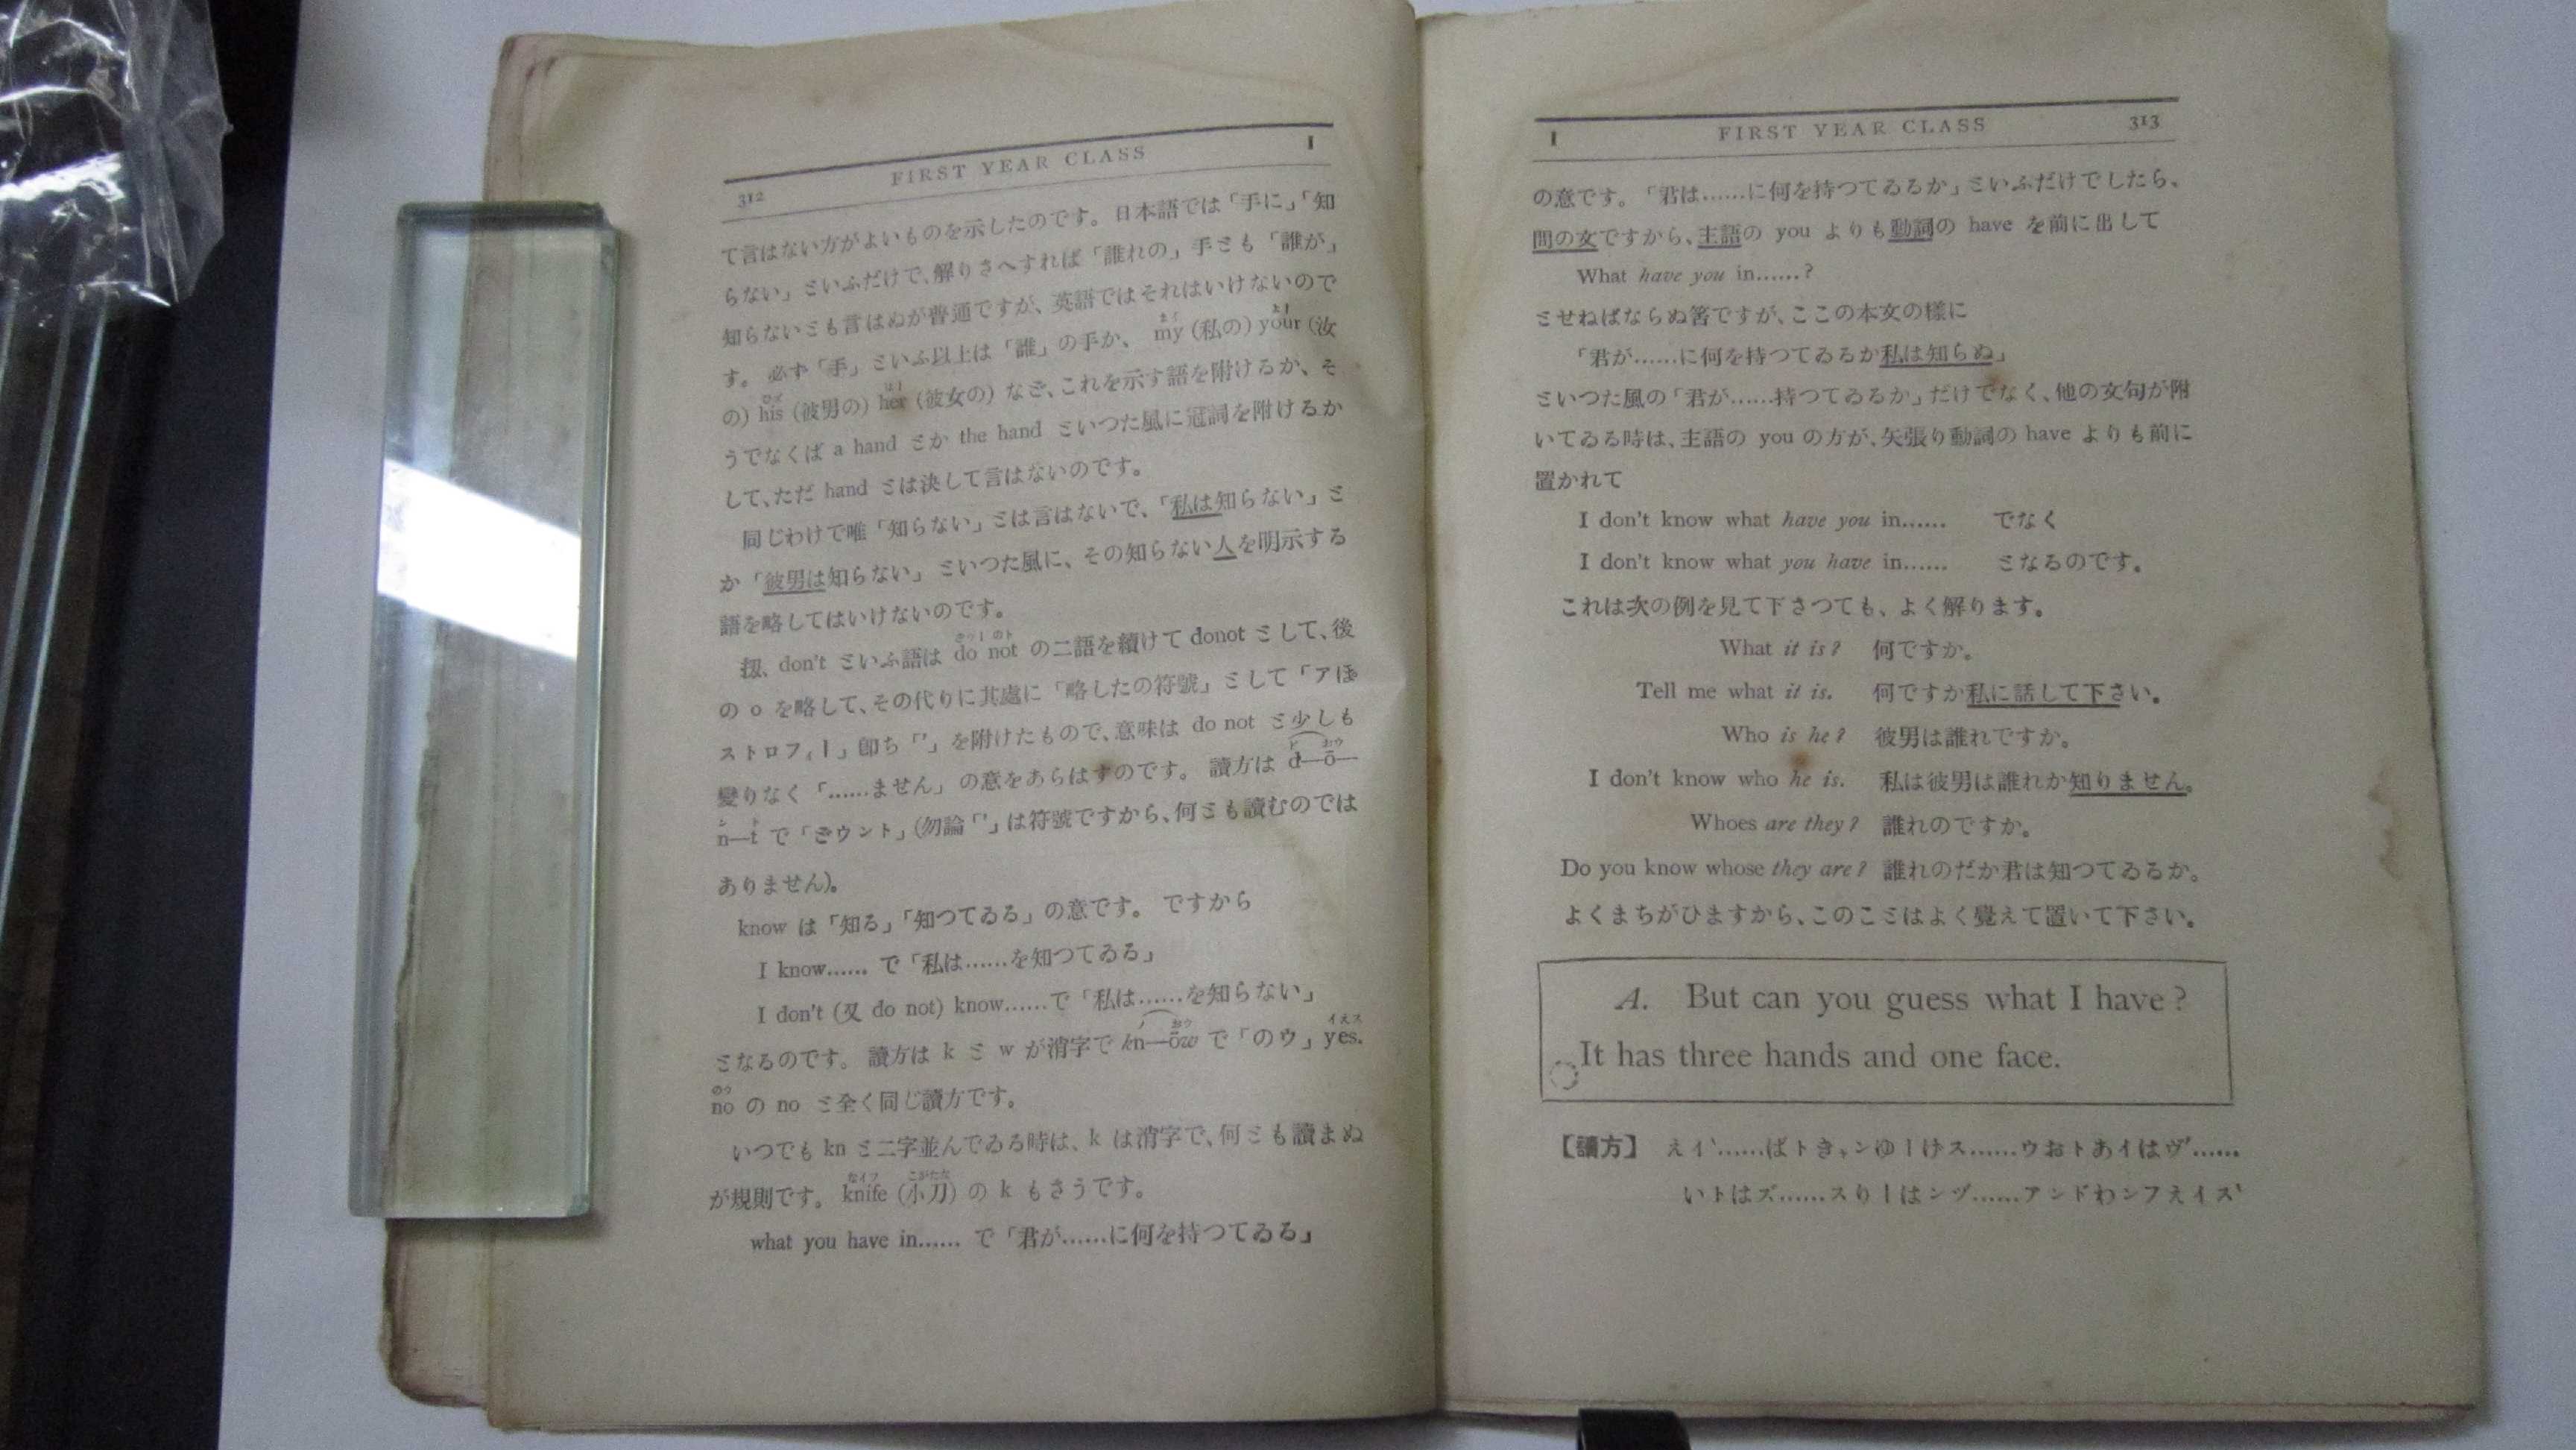 312 FIRST YEAR CLASS I
て言はない方がよいものを示したのです。日本語では「手に」「知
らない」といふだけで、解りさへすれば「誰れの」手とも「誰が」
知らないとも言はぬが普通ですが、英語ではそれはいけないので
す。必ず「手」といふ以上は「誰」の手か、my (私の) your (汝
の) his (彼男の) her (彼女の) など、これを示す語を附けるか、そ
うでなくば a hand とか the hand といつた風に冠詞を附けるか
して、ただ hand とは決して言はないのです。
同じわけで唯「知らない」とは言はないで、「私は知らない」と
か「彼男は知らない」といつた風に、その知らない人を明示する
語を略してはいけないのです。
扨、don't といふ語は do not の二語を續けて donot として、後
の o を略して、その代りに其處に「略したの符號」として「アぽ
ストロフィー」卽ち「'」を附けたもので、意味は do not と少しも
變りなく「……ません」の意をあらはすのです。讀方は d—ō—
n—t で「どウント」(勿論「'」は符號ですから、何とも讀むのでは
ありません)。
know は「知る」「知つてゐる」の意です。ですから
I know…… で「私は……を知つてゐる」
I don't (又 do not) know……で「私は……を知らない」
となるのです。讀方は k と w が消字で kn—ōw で「のウ」yes.
no の no と全く同じ讀方です。
いつでも kn と二字並んでゐる時は、k は消字で、何とも讀まぬ
が規則です。knife (小刀) の k もさうです。
what you have in…… で「君が……に何を持つてゐる」
I FIRST YEAR CLASS 313
の意です。「君は……に何を持つてゐるか」といふだけでしたら、
問の文ですから、主語の you よりも動詞の have を前に出して
What have you in……?
とせねばならぬ筈ですが、ここの本文の樣に
「君が……に何を持つてゐるか私は知らぬ」
といつた風の「君が……持つてゐるか」だけでなく、他の文句が附
いてゐる時は、主語の you の方が、矢張り動詞の have よりも前に
置かれて
I don't know what have you in…… でなく
I don't know what you have in…… となるのです。
これは次の例を見て下さつても、よく解ります。
What it is? 何ですか。
Tell me what it is. 何ですか私に話して下さい。
Who is he? 彼男は誰れですか。
I don't know who he is. 私は彼男は誰れか知りません。
Whoes are they? 誰れのですか。
Do you know whose they are? 誰れのだか君は知つてゐるか。
よくまちがひますから、このことはよく覺えて置いて下さい。
A. But can you guess what I have?
It has three hands and one face.
【讀方】 えイ`……ばトきャンゆーげス……ウおトあイはヴ′……
いトはズ……スりーはンヅ……アンドわンフえイス`